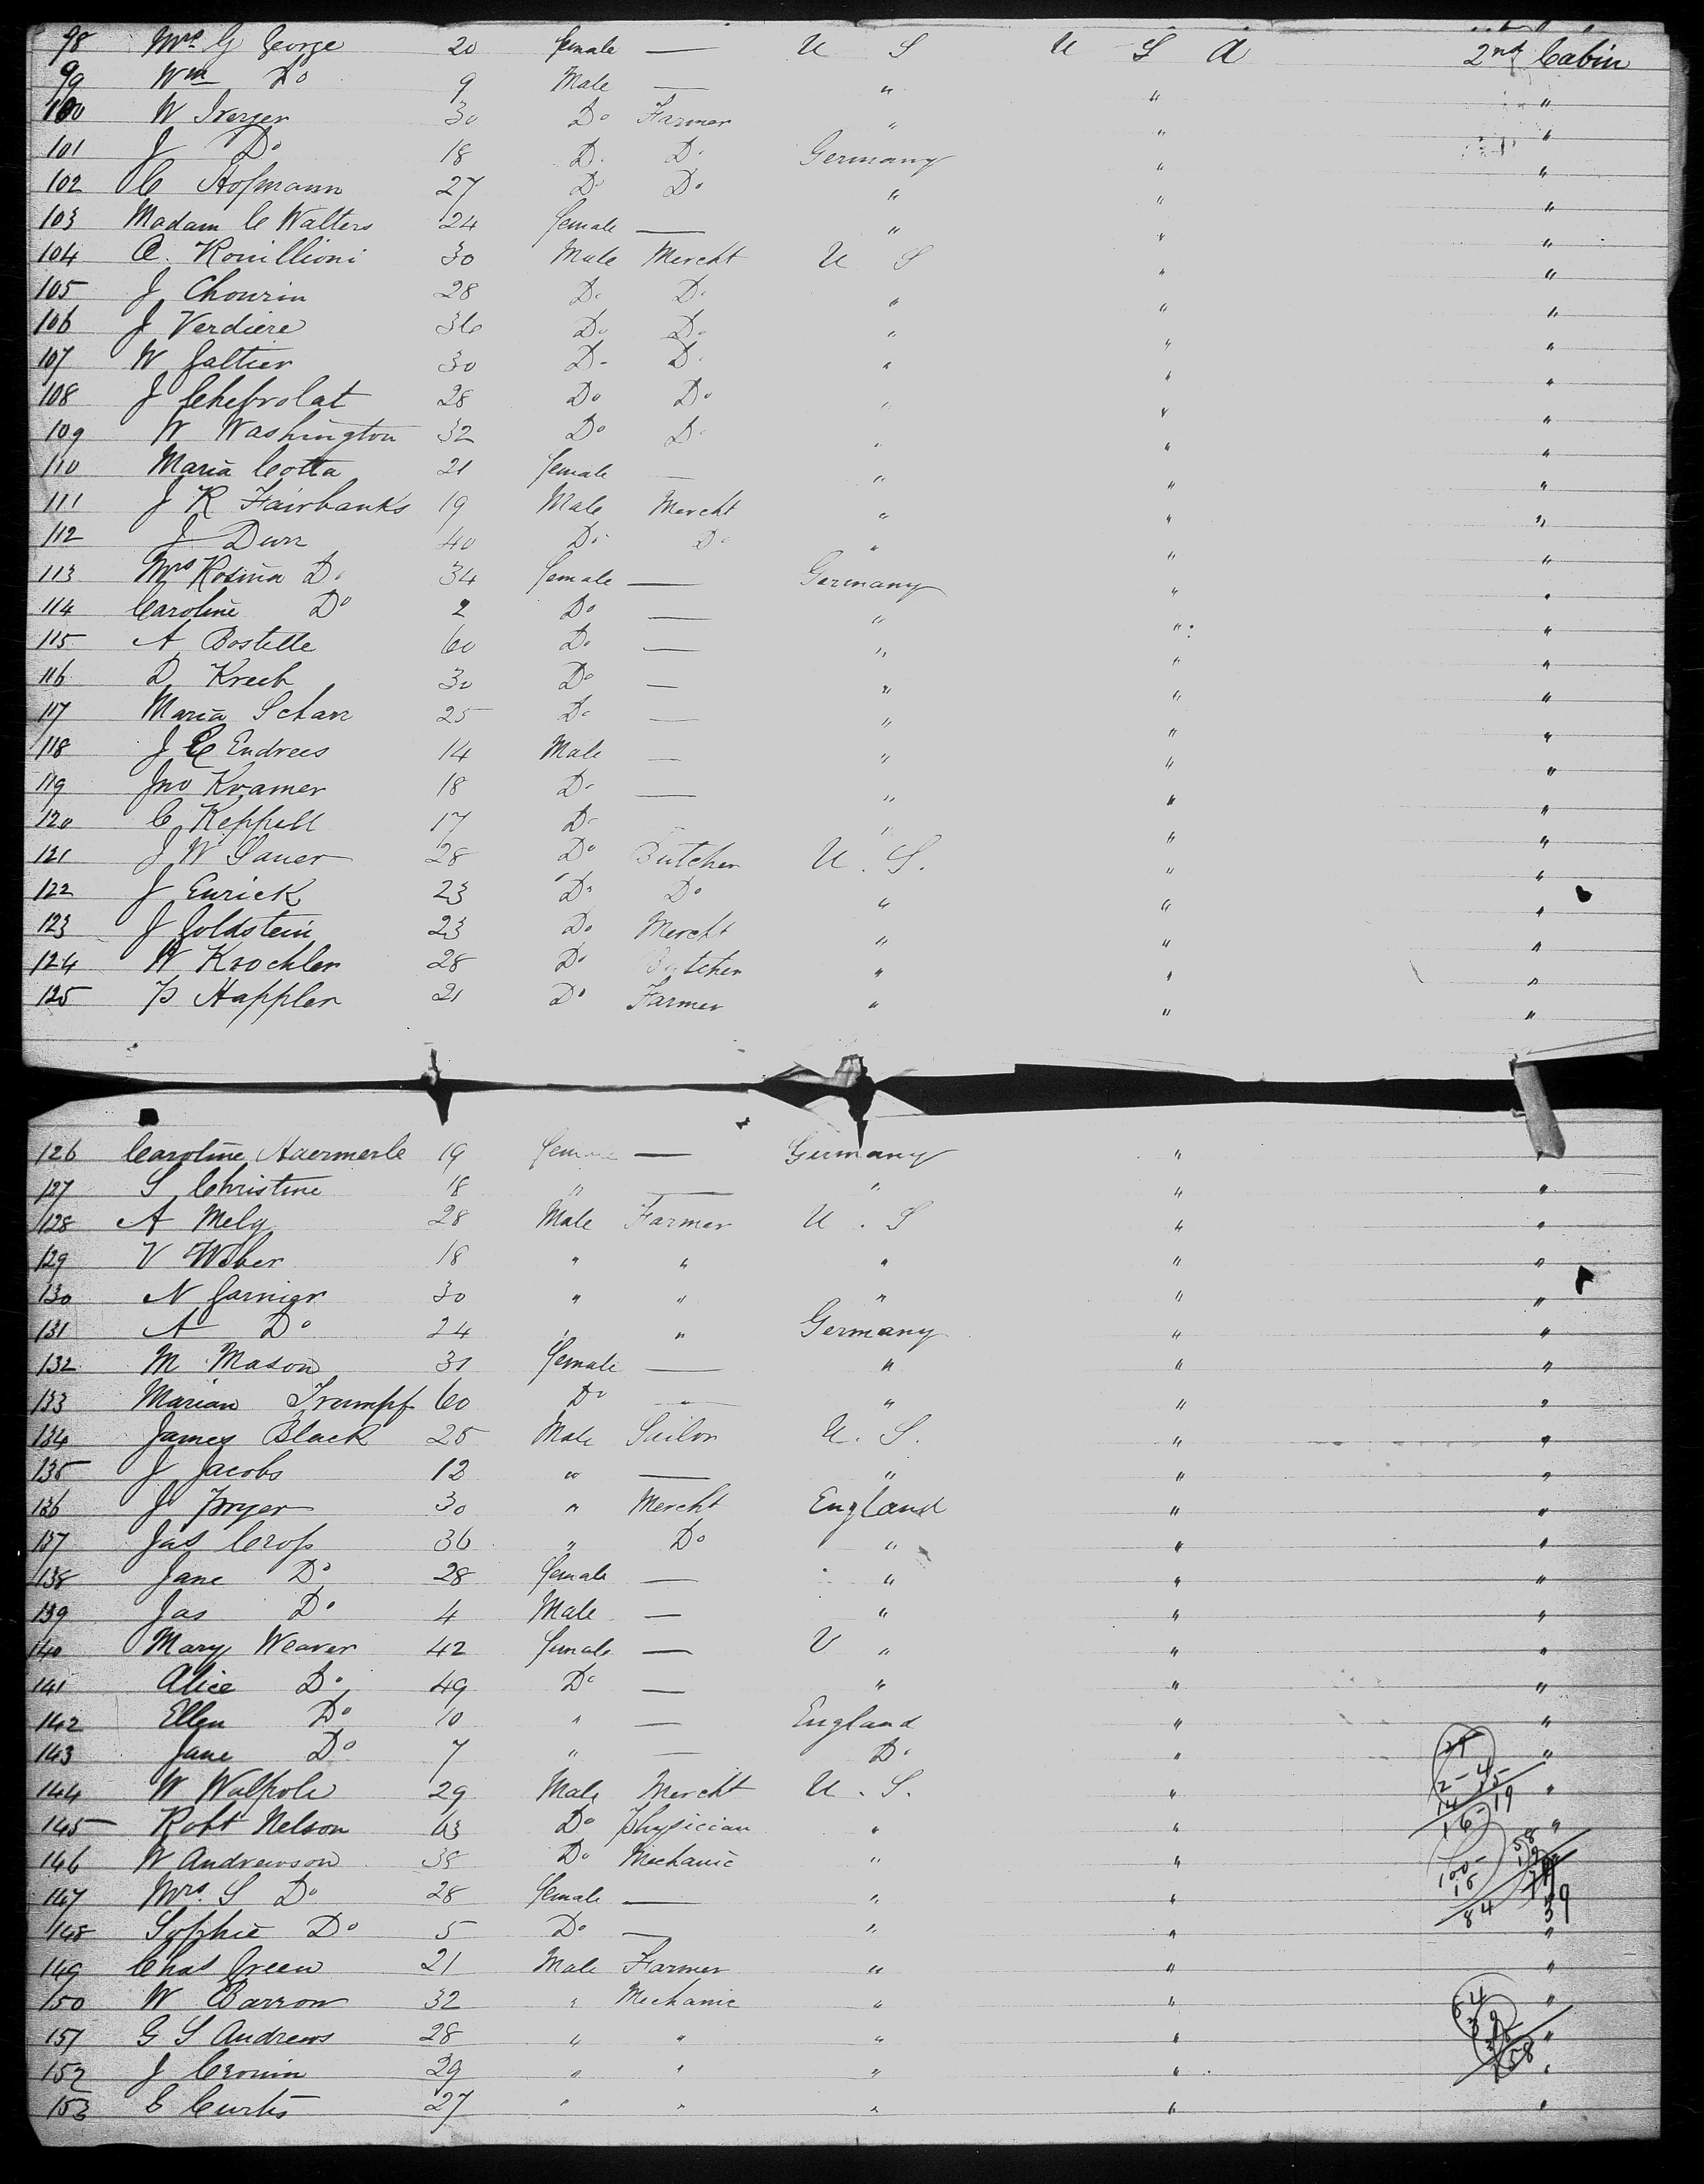 98 Mrs G George 20 female — U S U S A 2nd Cabin
99 Wm Do 9 Male — " " "
100 W Ireyer 30 Do Farmer " " "
101 J Do 18 Do Do Germany " "
102 C Hofmann 27 Do Do " " "
103 Madam C Walters 24 female — " " "
104 A. Rouillioni 30 Male Mercht U S " "
105 J Chourin 28 Do Do " " "
106 J Verdiere 36 Do Do " " "
107 W Galtier 30 Do Do " " "
108 J Chefrolat 28 Do Do " " "
109 W Washington 32 Do Do " " "
110 Maria Cotta 21 female — " " "
111 J R Fairbanks 19 Male Mercht " " "
112 J Durr 40 Do Do " " "
113 Mrs Rosina Do 34 female — Germany " "
114 Caroline Do 2 Do — " " "
115 A Bostelle 60 Do — " " "
116 D Kreeb 30 Do — " " "
117 Maria Scharr 25 Do — " " "
118 J C Endrees 14 Male — " " "
119 Jno Kramer 18 Do — " " "
120 C Keppell 17 Do — " " "
121 J W Sauer 28 Do Butcher U. S. " "
122 J Enrick 23 Do Do " " "
123 J Goldstein 23 Do Mercht " " "
124 W Krochler 28 Do Butcher " " "
125 P Happler 21 Do Farmer " " "
126 Caroline Haermerle 19 female — Germany " "
127 S Christine 18 " — " " "
128 A Mely 28 Male Farmer U. S " "
129 V Weber 18 " " " " "
130 N Garnier 30 " " " " "
131 A Do 24 " " Germany " "
132 M Mason 31 female — " " "
133 Marian Trumpf 60 Do — " " "
134 James Black 25 Male Sailor U. S. " "
135 J Jacobs 12 " — " " "
136 J Pryer 30 " Mercht England " "
137 Jas Cross 36 " Do " " "
138 Jane Do 28 female — " " "
139 Jas Do 4 Male — " " "
140 Mary Weaver 42 female — U " " "
141 Alice Do 49 Do — " " "
142 Ellen Do 10 " — England " "
143 Jane Do 7 " — Do " "
144 W Walpole 29 Male Mercht U. S. " "
145 Robt Nelson 63 Do Physician " " "
146 W Andrewson 38 Do Mechanic " " "
147 Mrs. S Do 28 female — " " "
148 Sophie Do 5 Do — " " "
149 Chas Green 21 Male Farmer " " "
150 W Barron 32 " Mechanic " " "
151 G S Andrews 28 " " " " "
152 J Cronin 29 " " " " "
153 C Curtis 27 " " " " "